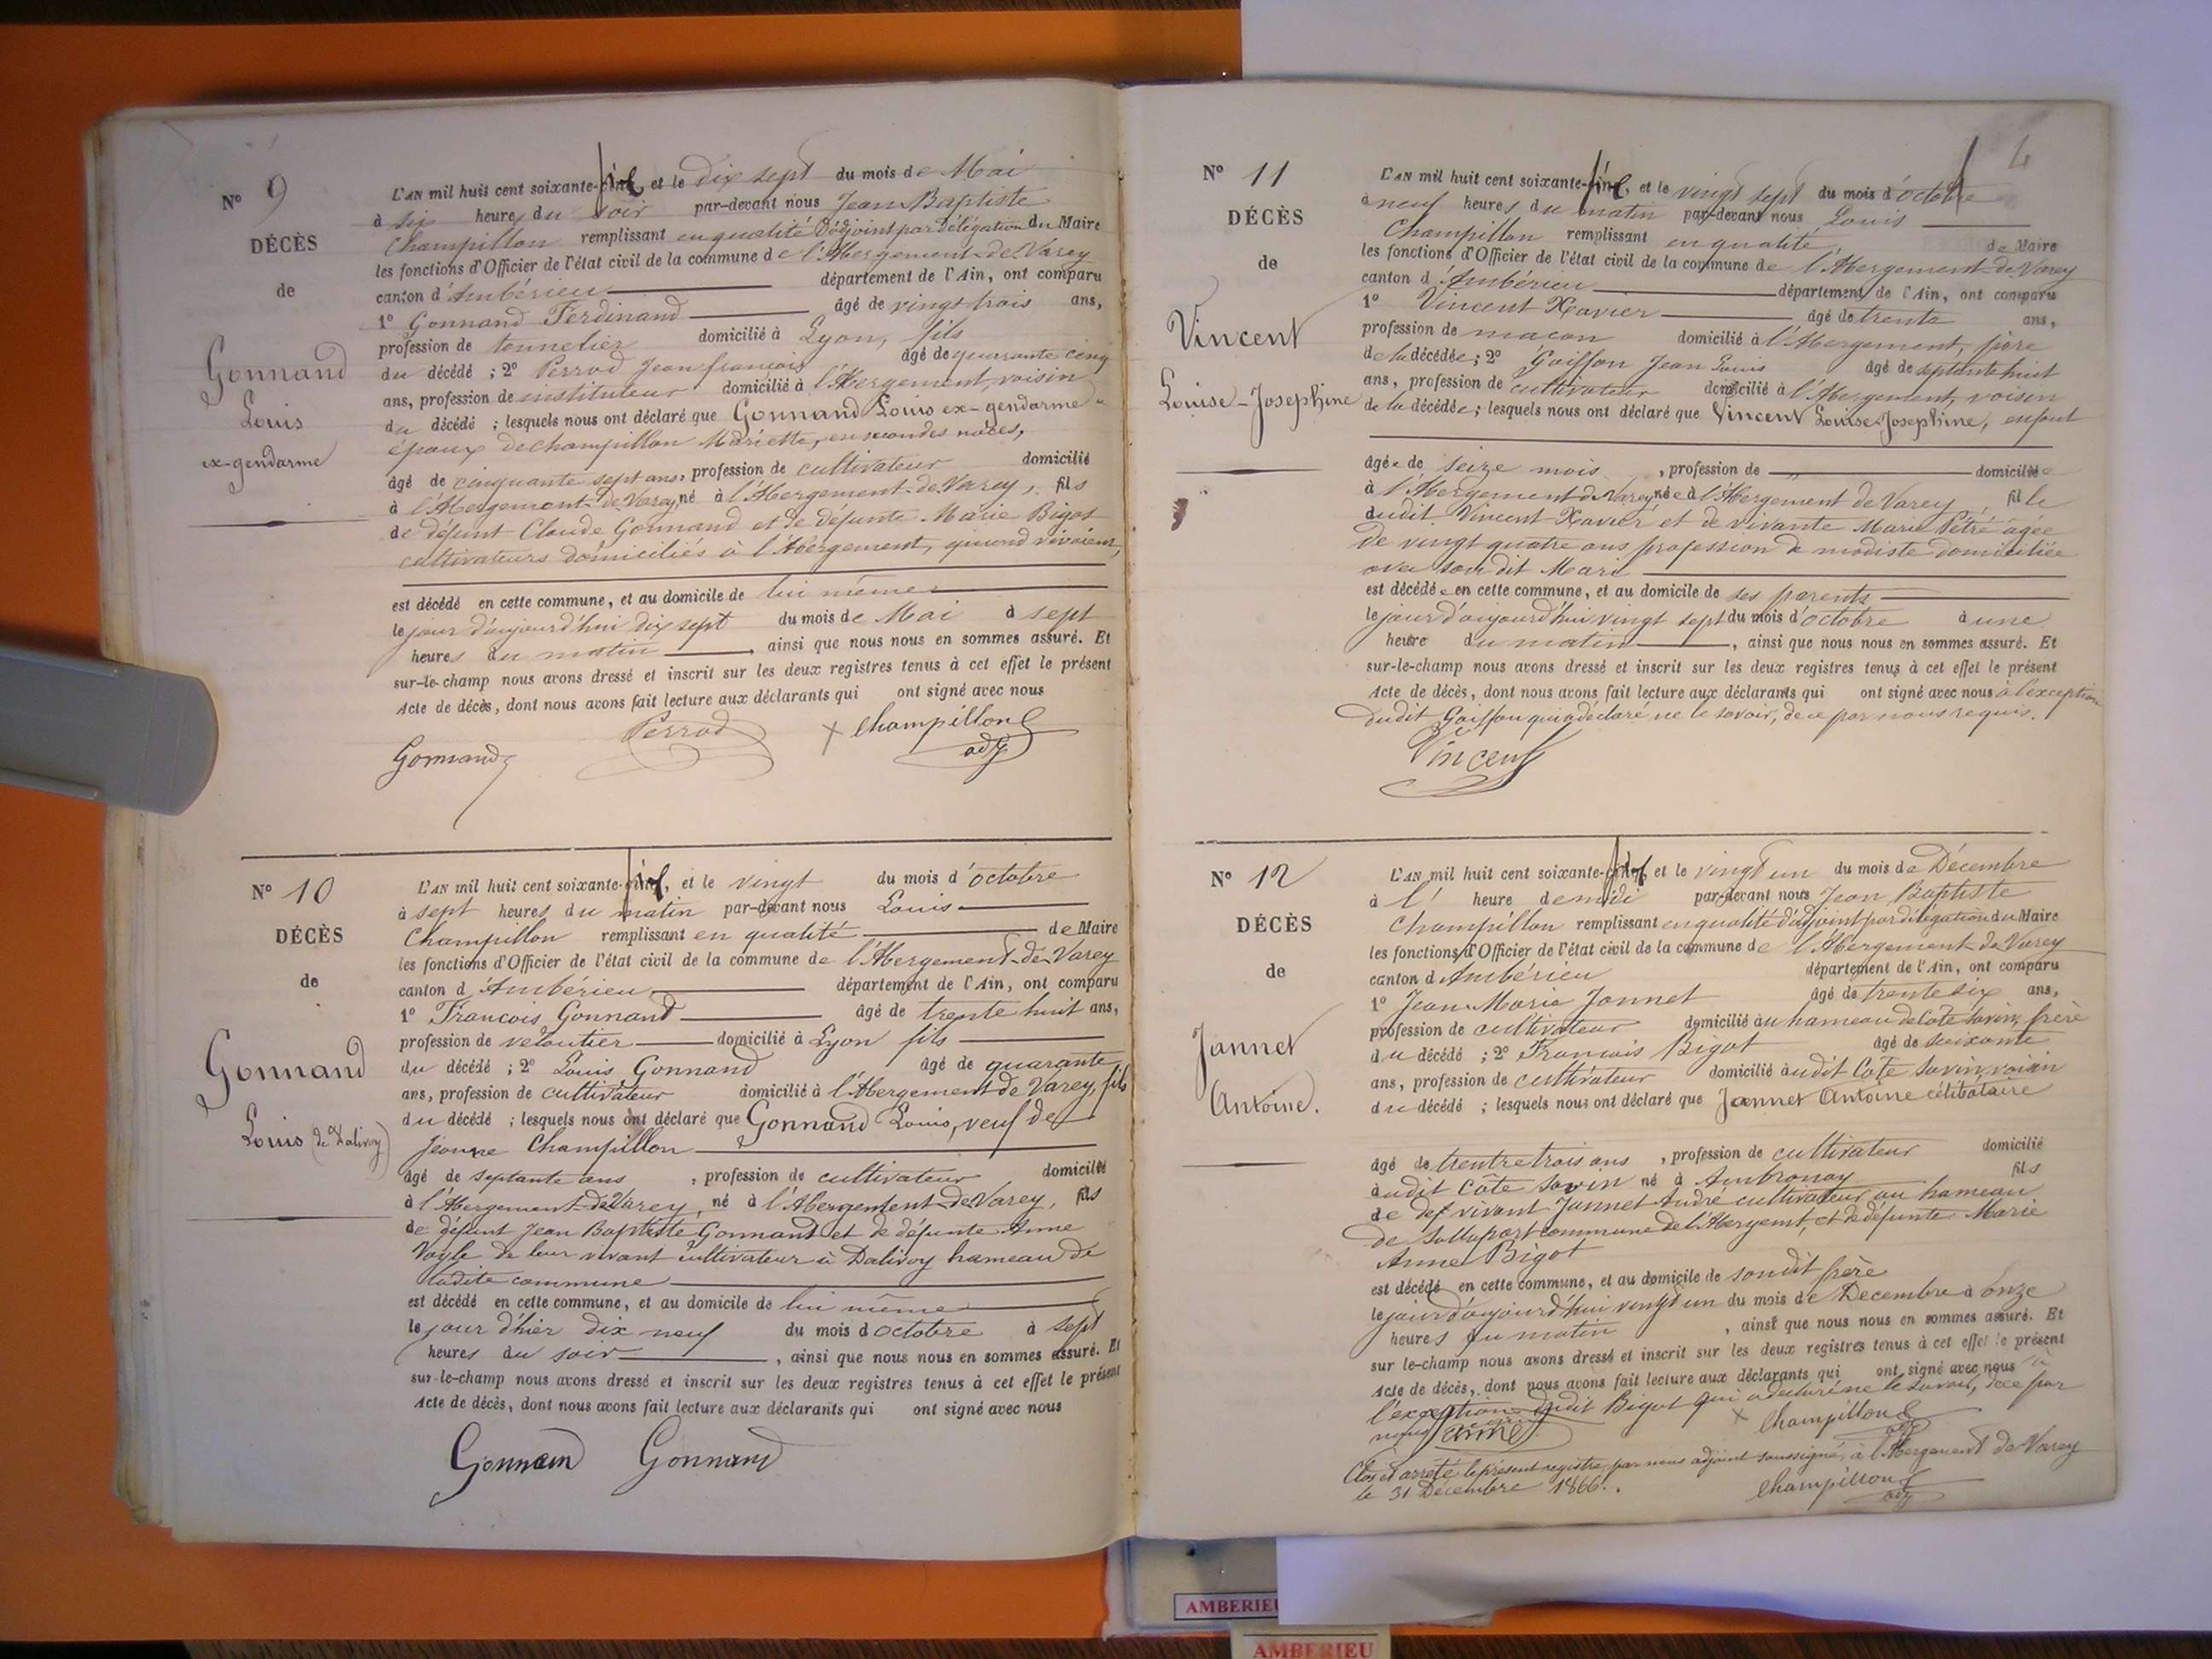 Nº 9
DÉCÈS
de
Gonnand
Louis
ex-gendarme
L'AN mil huit cent soixante-six, et le dix sept du mois de Mai
à six heures du soir par-devant nous Jean Baptiste
Champillon remplissant en qualité d'adjoint par délégation du Maire
les fonctions d'Officier de l'état civil de la commune de l'Abergement-de-Varey
canton d'Ambérieu département de l'Ain, ont comparu
1º Gonnand Ferdinand âgé de vingt trois ans,
profession de tonnelier domicilié à Lyon, fils
du décédé ; 2º Perrod Jean françois âgé de quarante cinq
ans, profession de instituteur domicilié à l'Abergement, voisin
du décédé ; lesquels nous ont déclaré que Gonnand Louis ex-gendarme
époux de Champillon Mariette, en secondes noces,
âgé de cinquante sept ans, profession de cultivateur domicilié
à l'Abergement-de-Varey, né à l'Abergement-de-Varey, fils
de défunt Claude Gonnand et de défunte Marie Bigot
cultivateurs domiciliés à l'Abergement, quand vivaient,
est décédé en cette commune, et au domicile de lui même
le jour d'aujourd'hui dix sept du mois de Mai à sept
heures du matin, ainsi que nous nous en sommes assuré. Et
sur-le-champ nous avons dressé et inscrit sur les deux registres tenus à cet effet le présent
Acte de décès, dont nous avons fait lecture aux déclarants qui ont signé avec nous
Gonnand Perrod Champillon
adj
Nº 10
DÉCÈS
de
Gonnand
Louis (de Dalivoy)
L'AN mil huit cent soixante-six, et le vingt du mois d'octobre
à sept heures du matin par-devant nous Louis
Champillon remplissant en qualité de Maire
les fonctions d'Officier de l'état civil de la commune de l'Abergement-de-Varey
canton d'Ambérieu département de l'Ain, ont comparu
1º François Gonnand âgé de trente huit ans,
profession de veloutier domicilié à Lyon fils
du décédé ; 2º Louis Gonnand âgé de quarante
ans, profession de cultivateur domicilié à l'Abergement de Varey, fils
du décédé ; lesquels nous ont déclaré que Gonnand Louis, veuf de
Jeanne Champillon
âgé de septante ans, profession de cultivateur domicilié
à l'Abergement-de-Varey, né à l'Abergement-de-Varey, fils
de défunt Jean Baptiste Gonnand et de défunte Anne
de leur vivant cultivateur à Dalivoy hameau de
ladite commune
est décédé en cette commune, et au domicile de lui même
le jour d'hier dix neuf du mois d'octobre à sept
heures du soir, ainsi que nous nous en sommes assuré. Et
sur-le-champ nous avons dressé et inscrit sur les deux registres tenus à cet effet le présent
Acte de décès, dont nous avons fait lecture aux déclarants qui ont signé avec nous
Gonnand Gonnand
4
Nº 11
DÉCÈS
de
Vincent
Louise-Josephine
L'AN mil huit cent soixante-six, et le vingt sept du mois d'octobre
à neuf heures du matin par-devant nous Louis
Champillon remplissant en qualité de Maire
les fonctions d'Officier de l'état civil de la commune de l'Abergement-de-Varey
canton d'Ambérieu département de l'Ain, ont comparu
1º Vincent Xavier âgé de trente ans,
profession de maçon domicilié à l'Abergement, père
de la décédée ; 2º Goiffon Jean Louis âgé de septante huit
ans, profession de cultivateur domicilié à l'Abergement, voisin
de la décédée ; lesquels nous ont déclaré que Vincent Louise-Josephine, enfant
âgée de seize mois, profession de domiciliée
à l'Abergement de Varey née à l'Abergement de Varey, fille
dudit Vincent Xavier et de vivante Marie Pétré âgée
de vingt quatre ans profession de modiste domiciliée
avec son dit Mari
est décédée en cette commune, et au domicile de ses parents
le jour d'aujourd'hui vingt sept du mois d'octobre à une
heure du matin, ainsi que nous nous en sommes assuré. Et
sur-le-champ nous avons dressé et inscrit sur les deux registres tenus à cet effet le présent
Acte de décès, dont nous avons fait lecture aux déclarants qui ont signé avec nous à l'exception
dudit Goiffon qui a déclaré ne le savoir, de ce par nous requis.
Vincent
Nº 12
DÉCÈS
de
Jannet
Antoine.
L'AN mil huit cent soixante-six, et le vingt un du mois de Décembre
à l' heure de midi par-devant nous Jean Baptiste
Champillon remplissant en qualité d'adjoint par délégation du Maire
les fonctions d'Officier de l'état civil de la commune de l'Abergement-de-Varey
canton d'Ambérieu département de l'Ain, ont comparu
1º Jean-Marie Jannet âgé de trente six ans,
profession de cultivateur domicilié au hameau de Côte Savin, frère
du décédé ; 2º François Bigot âgé de soixante
ans, profession de cultivateur domicilié audit Côte Savin, voisin
du décédé ; lesquels nous ont déclaré que Jannet Antoine célibataire
âgé de trentre trois ans, profession de cultivateur domicilié
audit Côte Savin né à Ambronay fils
de def vivant Jannet André cultivateur au hameau
de commune de l'Abergemt, et de défunte Marie
Anne Bigot
est décédé en cette commune, et au domicile de son dit frère
le jour d'aujourd'hui vingt un du mois de Decembre à onze
heures du matin, ainsi que nous nous en sommes assuré. Et
sur le-champ nous avons dressé et inscrit sur les deux registres tenus à cet effet le présent
Acte de décès, dont nous avons fait lecture aux déclarants qui ont signé avec nous à
l'exception dudit Bigot qui a déclaré ne le savoir, de ce par
nous requis
Jannet Champillon
adj
Clos et arrêté le présent registre par nous adjoint soussigné, à l'Abergement de Varey
le 31 Décembre 1866.
Champillon
adj
AMBERIEU
AMBERIEU